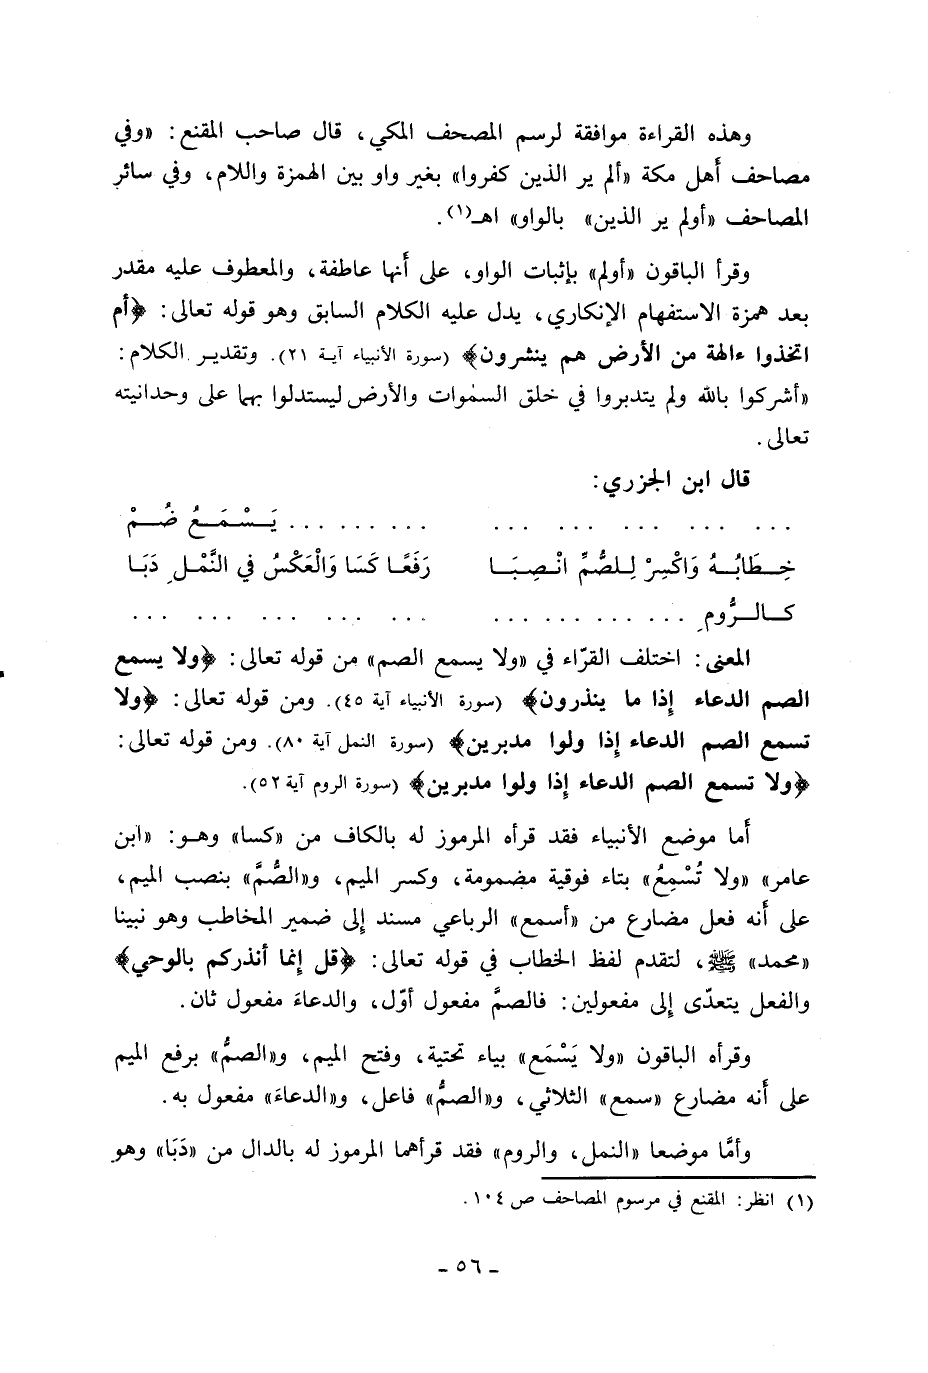 وهذه القراءة موافقة لرسم المصحف المكي، قال صاحب المقنع: «وفي
مصاحف أهل مكة «ألم ير الذين كفروا» بغير واو بين الهمزة واللام، وفي سائر
المصاحف «أولم ير الذين» بالواو» اهـ(١).
وقرأ الباقون «أولم» بإثبات الواو، على أنها عاطفة، والمعطوف عليه مقدر
بعد همزة الاستفهام الإنكاري، يدل عليه الكلام السابق وهو قوله تعالى: ﴿أم
اتخذوا ءالهة من الأرض هم ينشرون﴾ (سورة الأنبياء آية ٢١). وتقدير الكلام:
«أشركوا بالله ولم يتدبروا في خلق السمٰوات والأرض ليستدلوا بهما على وحدانيته
تعالى.
قال ابن الجزري:
... ... ... ... ... ... ... ... ... يَسْمَعُ ضُمْ
خِطَابُهُ وَاكْسِرْ لِلصُّمِّ انْصِبَا رَفَعًا كَسَا وَالْعَكْسُ في النَّمْلِ دَبَا
كالرُّومِ ... ... ... ... ... ... ... ... ...
المعنى: اختلف القرّاء في «ولا يسمع الصم» من قوله تعالى: ﴿ولا يسمع
الصم الدعاء إذا ما ينذرون﴾ (سورة الأنبياء آية ٤٥). ومن قوله تعالى: ﴿ولا
تسمع الصم الدعاء إذا ولوا مدبرين﴾ (سورة النمل آية ٨٠). ومن قوله تعالى:
﴿ولا تسمع الصم الدعاء إذا ولوا مدبرين﴾ (سورة الروم آية ٥٢).
أما موضع الأنبياء فقد قرأه المرموز له بالكاف من «كسا» وهو: «ابن
عامر» «ولا تُسْمِعُ» بتاء فوقية مضمومة، وكسر الميم، و«الصُّمَّ» بنصب الميم،
على أنه فعل مضارع من «أسمع» الرباعي مسند إلى ضمير المخاطب وهو نبينا
«محمد» ﷺ، لتقدم لفظ الخطاب في قوله تعالى: ﴿قل إنما أنذركم بالوحي﴾
والفعل يتعدّى إلى مفعولين: فالصمَّ مفعول أوّل، والدعاءَ مفعول ثان.
وقرأه الباقون «ولا يَسْمَع» بياء تحتية، وفتح الميم، و«الصمُّ» برفع الميم
على أنه مضارع «سمع» الثلاثي، و«الصمُّ» فاعل، و«الدعاءَ» مفعول به.
وأمَّا موضعا «النمل، والروم» فقد قرأهما المرموز له بالدال من «دَبَا» وهو
(١) انظر: المقنع في مرسوم المصاحف ص ١٠٤.
- ٥٦ -